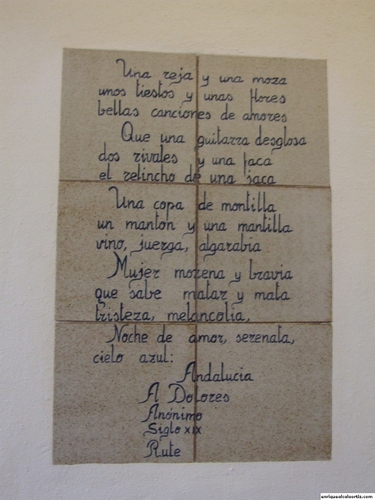 Una reja y una moza
unos tiestos y unas flores
bellas canciones de amores
Que una guitarra desglosa
dos rivales y una faca
el relincho de una jaca
Una copa de montilla
un mantón y una mantilla
vino, juerga, algarabia
Mujer morena y bravia
que sabe matar y mata
tristeza, melancolia,
Noche de amor, serenata,
cielo azul:
Andalucia
A Dolores
Anónimo
Siglo XIX
Rute
enriquealcalaortiz.com